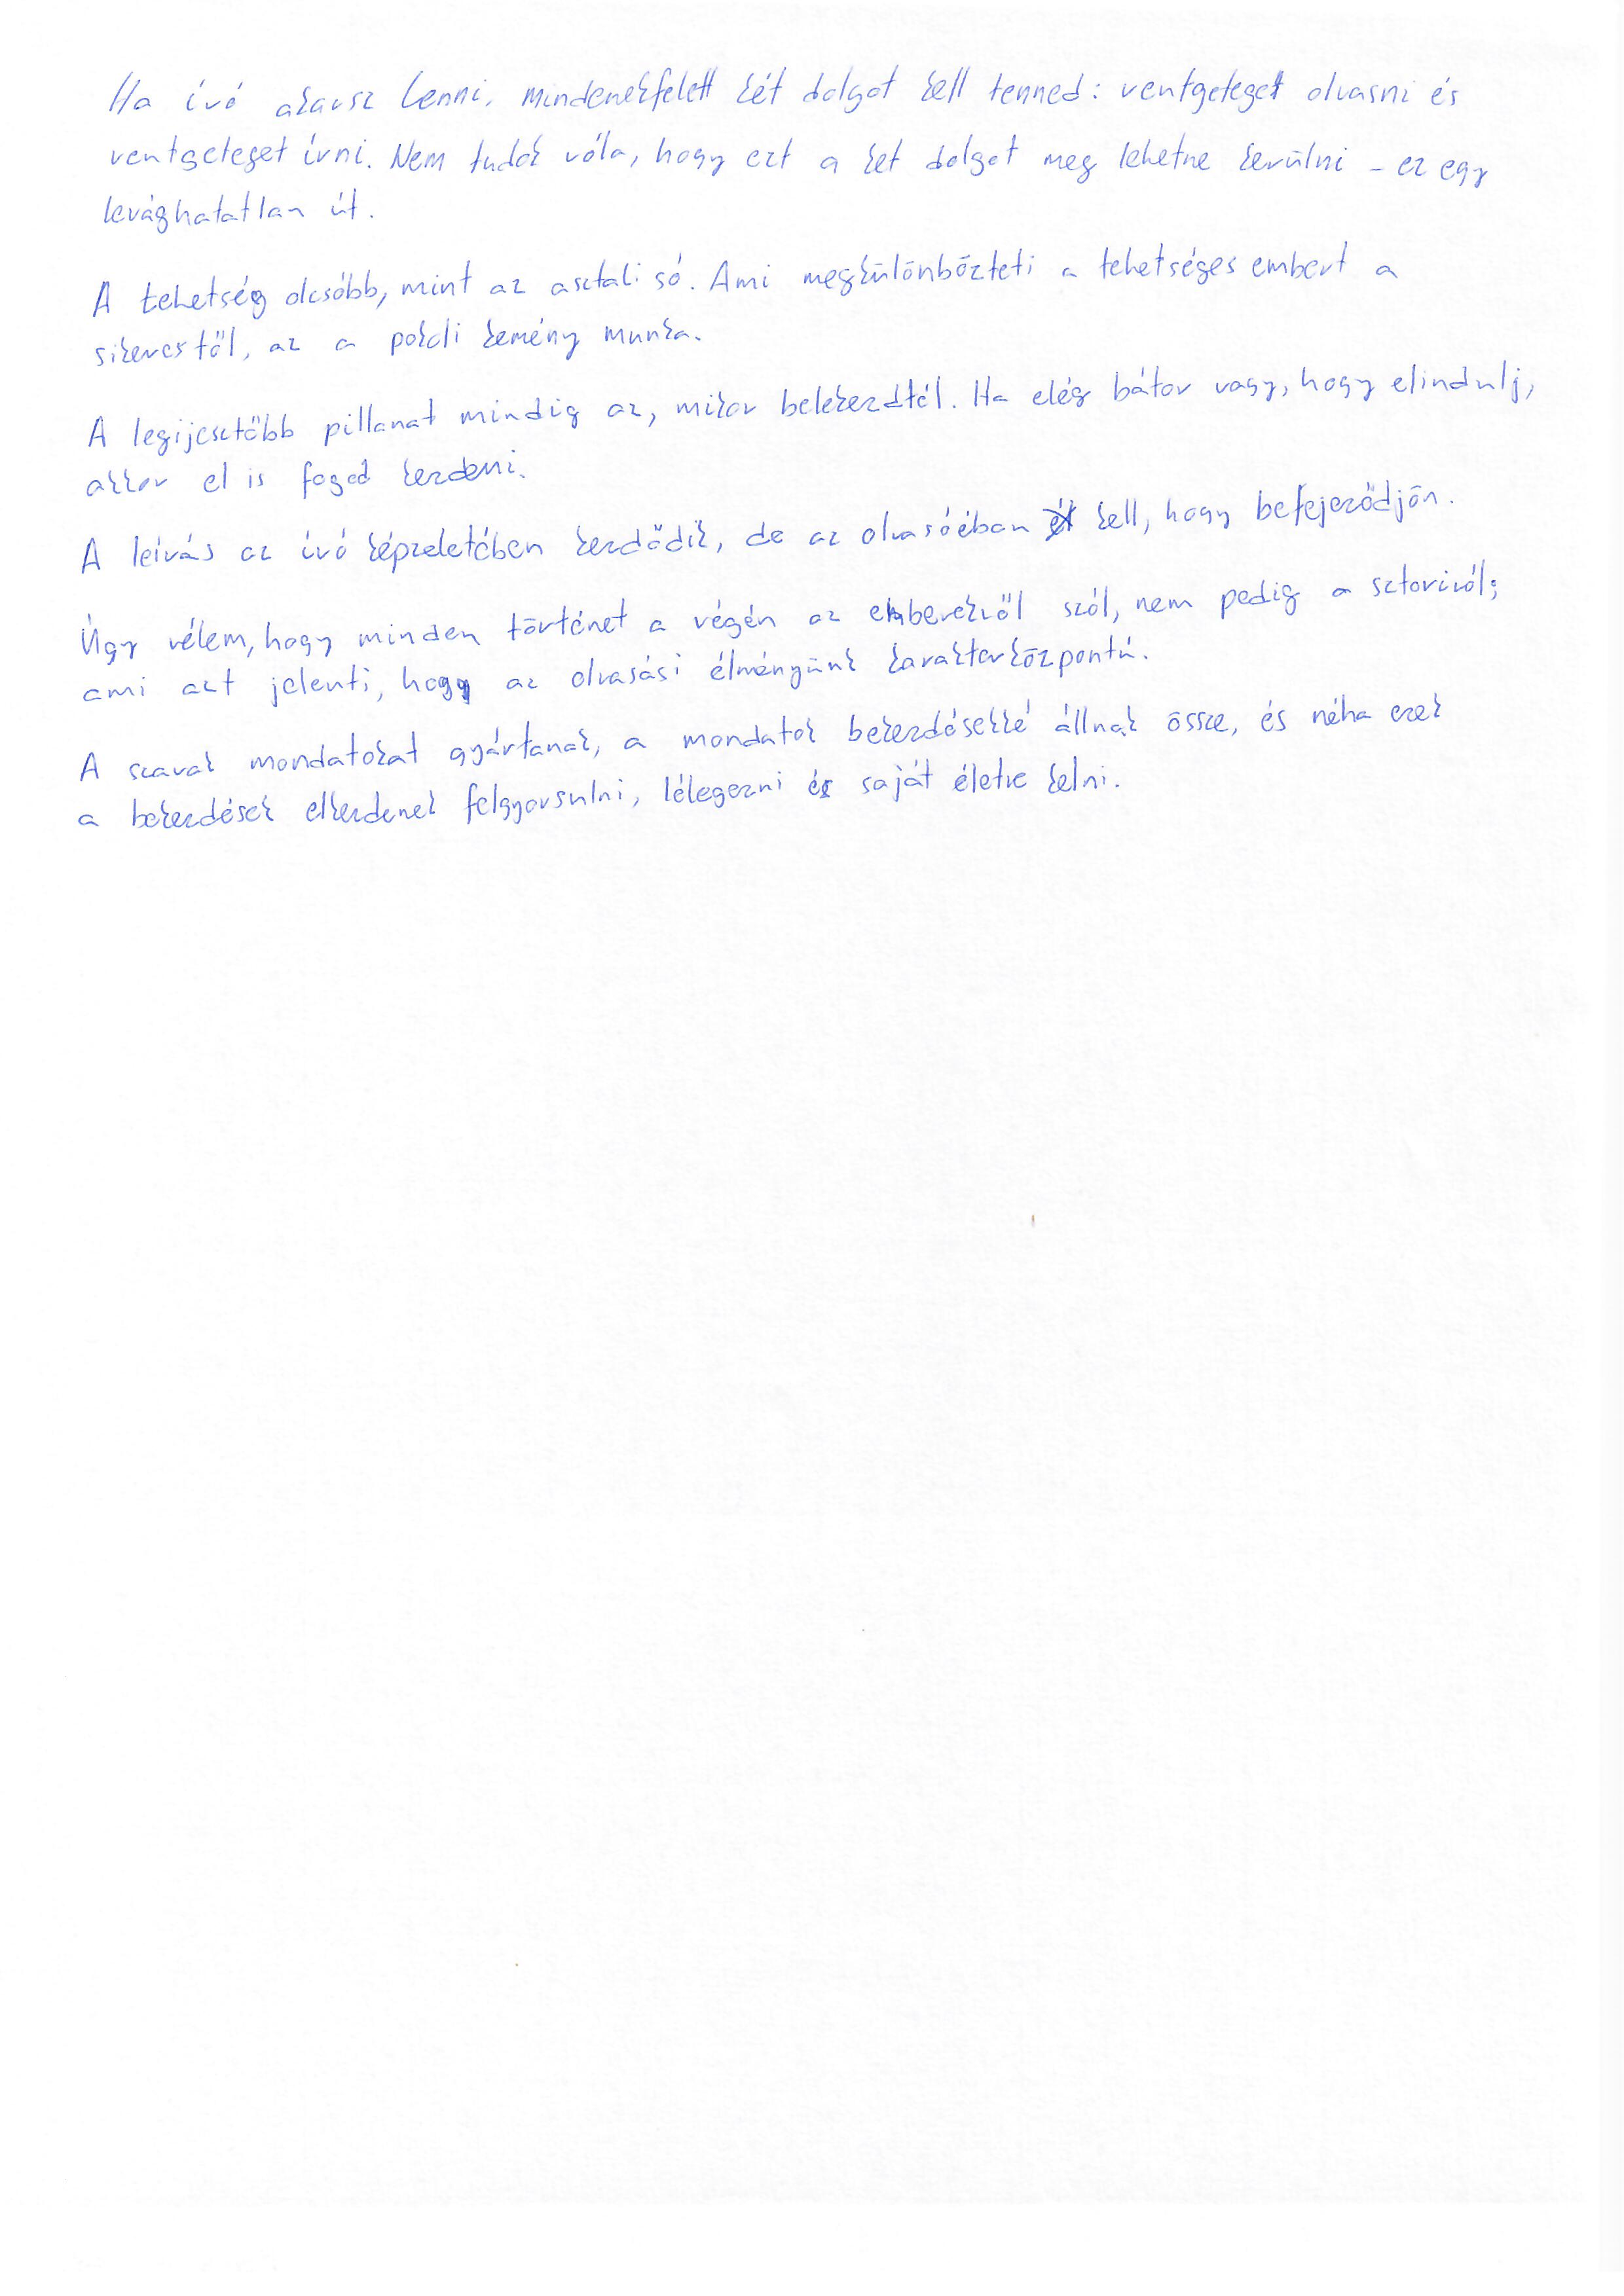 Ha író akarsz lenni, mindenekfelett két dolgot kell tenned: rentgeteget olvasni és
rentgeteget írni. Nem tudok róla, hogy ezt a két dolgot meg lehetne kerülni - ez egy
levághatatlan út.
A tehetség olcsóbb, mint az asztali só. Ami megkülönbözteti a tehetséges embert a
sikerestől, az a pokoli kemény munka.
A legijesztőbb pillanat mindig az, mikor belekezdtél. Ha elég bátor vagy, hogy elindulj,
akkor el is fogod kezdeni.
A leírás az író képzeletében kezdődik, de az olvasóéban kell, hogy befejeződjön.
Úgy vélem, hogy minden történet a végén az emberekről szól, nem pedig a sztoriról;
ami azt jelenti, hogy az olvasási élményünk karakterközpontú.
A szavak mondatokat gyártanak, a mondatok bekezdésekké állnak össze, és néha ezek
a bekezdések elkezdenek felgyorsulni, lélegezni és saját életre kelni.